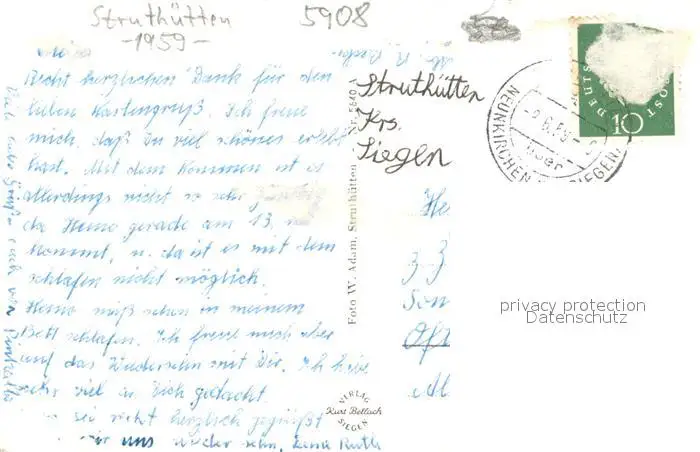 Struthütten
-1959-
5908
Recht herzlichen Dank für den
lieben Kartengruß. Ich freue
mich, daß Du viel schönes erlebt
hast. Mit dem Kommen ist es
allerdings nicht so sehr günstig
da Heino gerade am 13.
kommt, u. da ist es mit dem
schlafen nicht möglich.
Heino muß schon in meinem
Bett schlafen. Ich freue mich aber
auf das Wiedersehn mit Dir. Ich habe
sehr viel an Dich gedacht.
sei recht herzlich gegrüßt
uns wieder sehn, Ruth
Struthütten
Krs.
Siegen
Foto W. Adam, Struthütten Nr. 5640
VERLAG
Kurt Bellach
SIEGEN
NEUNKIRCHEN SIEGEN
über
DEUTSCHE POST
10
He
z. Z.
Son
privacy protection
Datenschutz